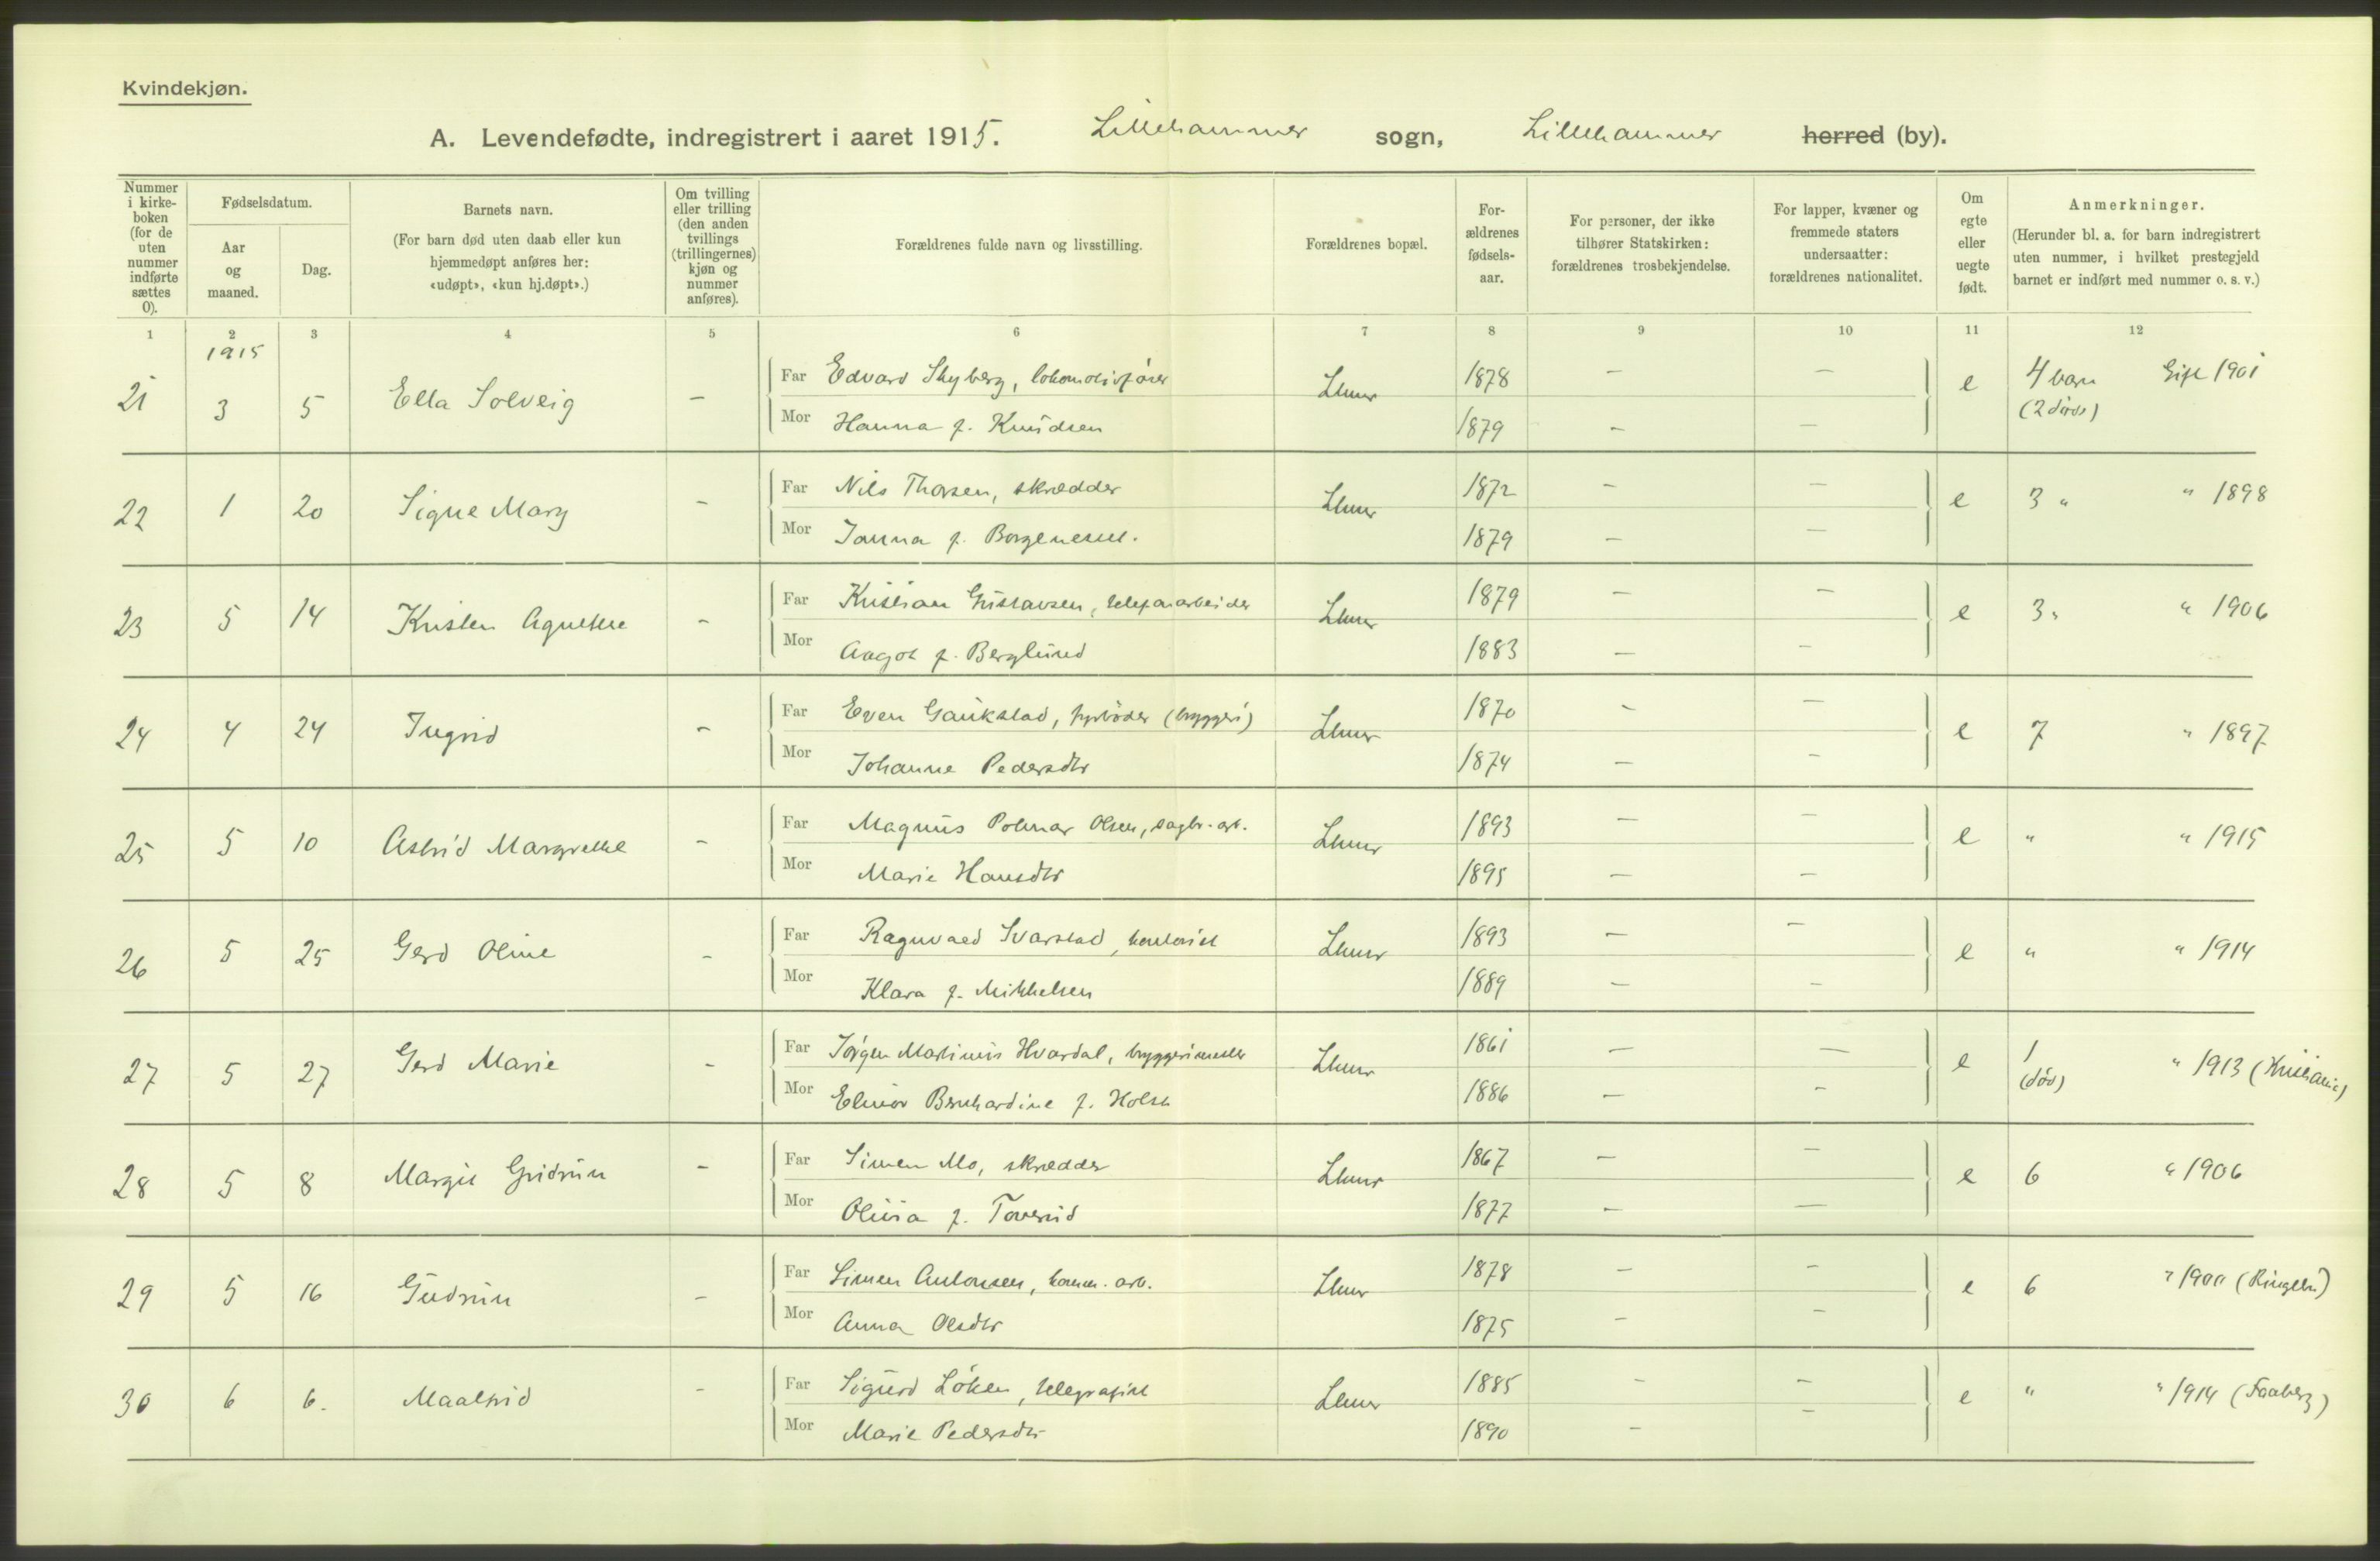 Kvindekjøn.
A. Levendefødte, indregistrert i aaret 1915. Lillehammer sogn, Lillehammer herred (by).
Nummer i kirke-boken (for de uten nummer indførte sættes 0).
Fødselsdatum.
Aar og maaned.
Dag.
Barnets navn.
(For barn død uten daab eller kun hjemmedøpt anføres her: «udøpt», «kun hj.døpt».)
Om tvilling eller trilling (den anden tvillings (trillingernes) kjøn og nummer anføres).
Forældrenes fulde navn og livsstilling.
Forældrenes bopæl.
For-ældrenes fødsels-aar.
For personer, der ikke tilhører Statskirken: forældrenes trosbekjendelse.
For lapper, kvæner og fremmede staters undersaatter: forældrenes nationalitet.
Om egte eller uegte født.
Anmerkninger.
(Herunder bl. a. for barn indregistrert uten nummer, i hvilket prestegjeld barnet er indført med nummer o. s. v.)
1 2 3 4 5 6 7 8 9 10 11 12
1915
21 3 5 Ella Solveig - Far Edvard Skyberg, lokomotivfører Lhmr 1878 - - e 4 barn Gift 1901
Mor Hanna f. Knudsen 1879 - - (2 døde)
22 1 20 Signe Mary - Far Nils Thorsen, skrædder Lhmr 1872 - - e 3 " " 1898
Mor Janna f. 1879 - -
23 5 14 Kirsten Agnethe - Far Kristian Gustavsen, telefonarbeider Lhmr 1879 - - e 3 " " 1906
Mor Aagot f. Berglund 1883 - -
24 4 24 Ingrid - Far Even Gaukstad, fyrbøder (bryggeri) Lhmr 1870 - - e 7 " 1897
Mor Johanne Pedersdtr 1874 - -
25 5 10 Astrid Margrethe - Far Magnus Olsen, sagbr. arb. Lhmr 1893 - - e " " 1915
Mor Marie Hansdtr 1895 - -
26 5 25 Gerd Oline - Far Ragnvald Svarstad, kontorist Lhmr 1893 - - e " " 1914
Mor Klara f. Mikkelsen 1889 - -
27 5 27 Gerd Marie - Far Jørgen Martinus Hvardal, bryggerimester Lhmr 1861 - - e 1 " 1913 (Kristiania)
Mor Elinor Bernhardine f. Holst 1886 - - (død)
28 5 8 Margit Gudrun - Far Simen Mo, skrædder Lhmr 1867 - - e 6 " 1906
Mor Olivia f. Toverud 1877 - -
29 5 16 Gudrun - Far Simen Antonsen, komm. arb. Lhmr 1878 - - e 6 " 1900 (Ringebu)
Mor Anna Olsdtr 1875 - -
30 6 6. Maalfrid - Far Sigurd Løken, telegrafist Lhmr 1885 - - e " " 1914 (Faaberg)
Mor Marie Pedersdtr 1890 - -